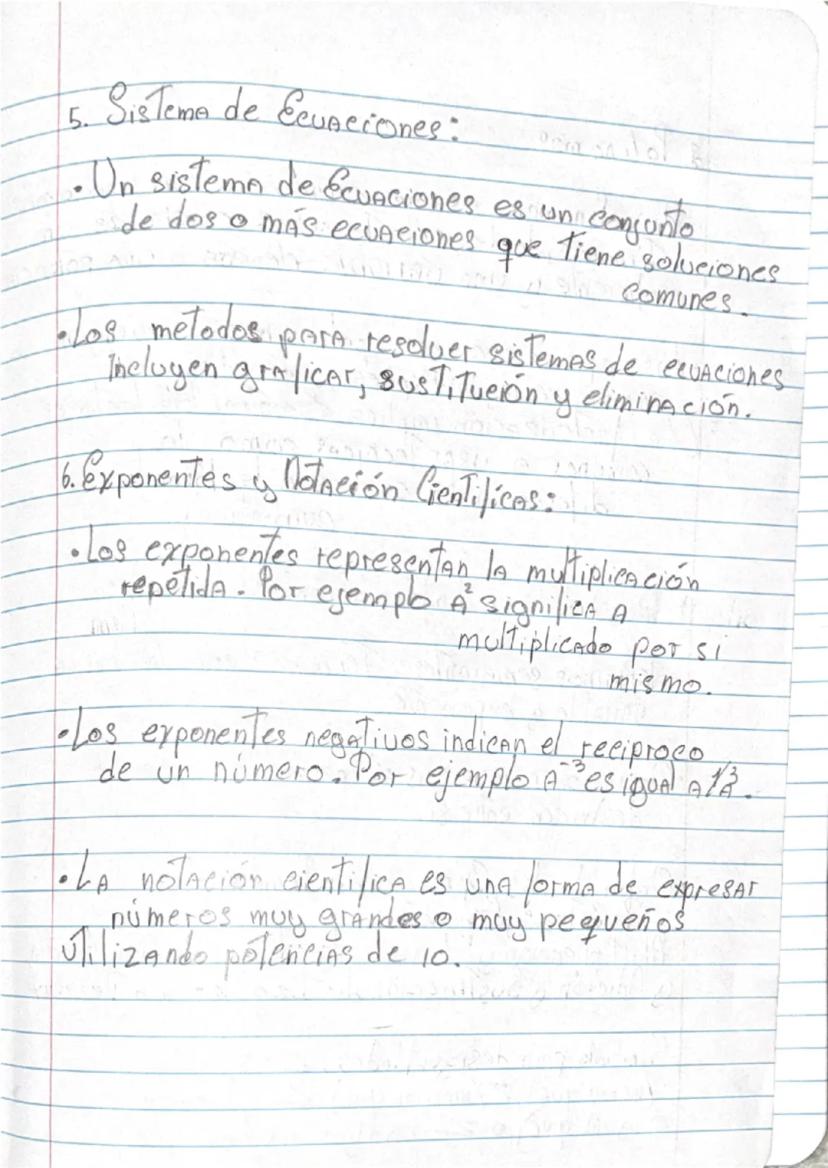 5. Sistema de Ecuaciones:
• Un sistema de Ecuaciones es un conjunto
de dos o más ecuaciones que tiene soluciones
comunes.
• Los metodos para resolver sistemas de ecuaciones
Incluyen graficar, sustitución y eliminación.
6. Exponentes y Notación Cientificas:
• Los exponentes representan la multiplicación
repetida. Por ejemplo A² significa A
multiplicado por si
mismo.
• Los exponentes negativos indican el reciproco
de un número. Por ejemplo A⁻³ es igual a 1/A³.
• La notación cientifica es una forma de expresar
números muy grandes o muy pequeños
utilizando potencias de 10.